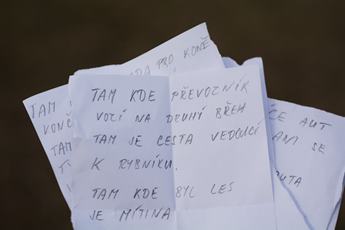 DA PRO KONĚ
TAM
KONČ
TAM
TAM KDE PŘEVOZNÍK
VOZÍ NA DRUHÝ BŘEH
TAM JE CESTA VEDOUCÍ
K RYBNÍKU.
TAM KDE BYL LES
JE MÝTINA
ÍCE AUT
AM SE
UTA